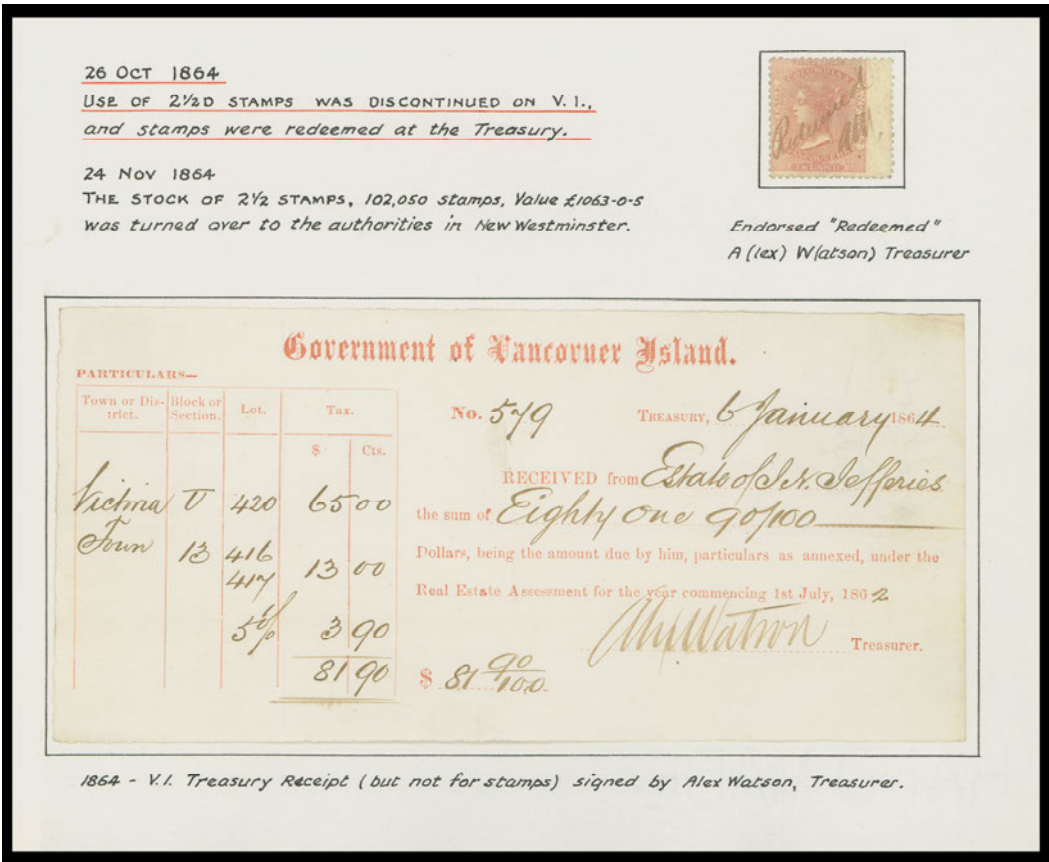 26 OCT 1864
USE OF 2½D STAMPS WAS DISCONTINUED ON V.I.,
and stamps were redeemed at the Treasury.
24 NOV 1864
THE STOCK OF 2½ STAMPS, 102,050 stamps, Value £1063-0-5
was turned over to the authorities in New Westminster.
Redeemed
AW
ISLAND
Endorsed "Redeemed"
A(lex) W(atson) Treasurer
Government of Vancouver Island.
PARTICULARS—
Town or District. Block or Section. Lot. Tax.
$ Cts.
No. 579 TREASURY, 6 January 1864
Victoria Town V 420 65 00
13 416 417 13 00
5% 3 90
81 90
RECEIVED from Estate of J. N. Jefferies
the sum of Eighty One 90/100
Dollars, being the amount due by him, particulars as annexed, under the
Real Estate Assessment for the year commencing 1st July, 1862
Alex Watson Treasurer.
$ 81 90/100
1864 - V.I. Treasury Receipt (but not for stamps) signed by Alex Watson, Treasurer.